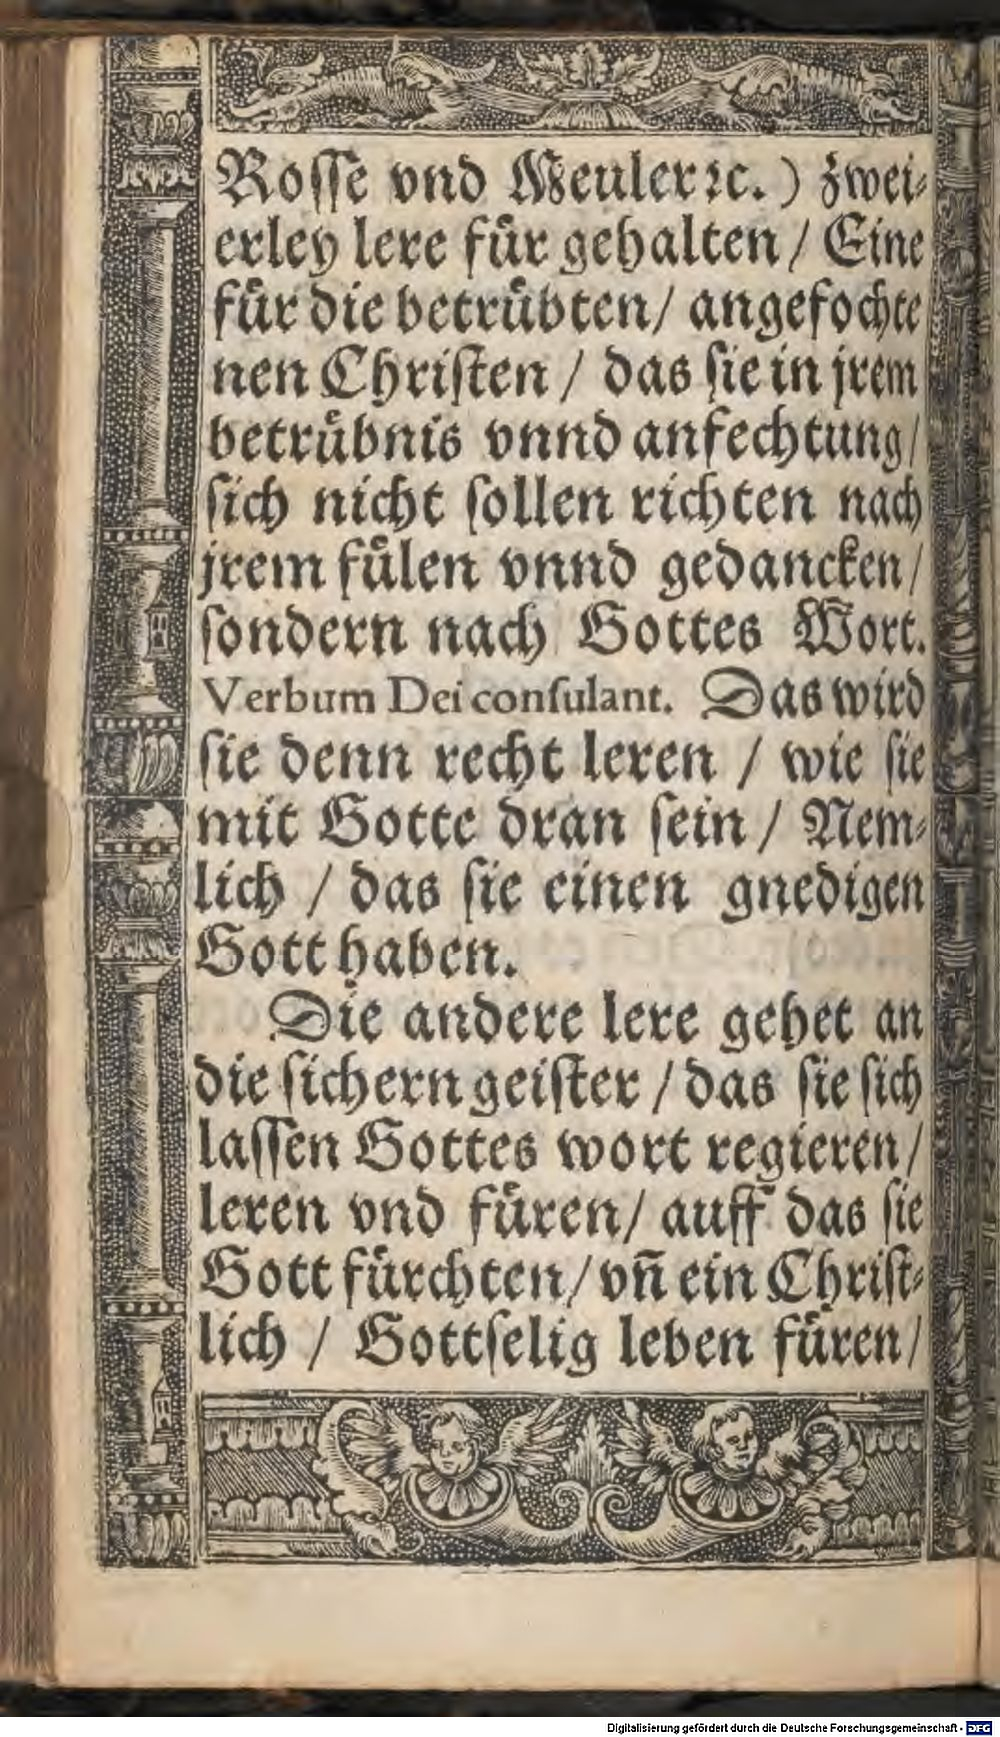 Roſſe vnd Meuler ꝛc.) zwei⸗
erley lere fuͤr gehalten / Eine
fuͤr die betruͤbten / angefochte
nen Chriſten / das ſie in jrem
betruͤbnis vnnd anfechtung /
ſich nicht ſollen richten nach
jrem fuͤlen vnnd gedancken /
ſondern nach Gottes Wort.
Verbum Dei conſulant. Das wird
ſie denn recht leren / wie ſie
mit Gotte dran ſein / Nem⸗
lich / das ſie einen gnedigen
Gott haben.
Die andere lere gehet an
die ſichern geiſter / das ſie ſich
laſſen Gottes wort regieren /
leren vnd fuͤren / auff das ſie
Gott fuͤrchten / vn̄ ein Chriſt⸗
lich / Gottſelig leben fuͤren /
Digitalisierung gefördert durch die Deutsche Forschungsgemeinschaft - DFG